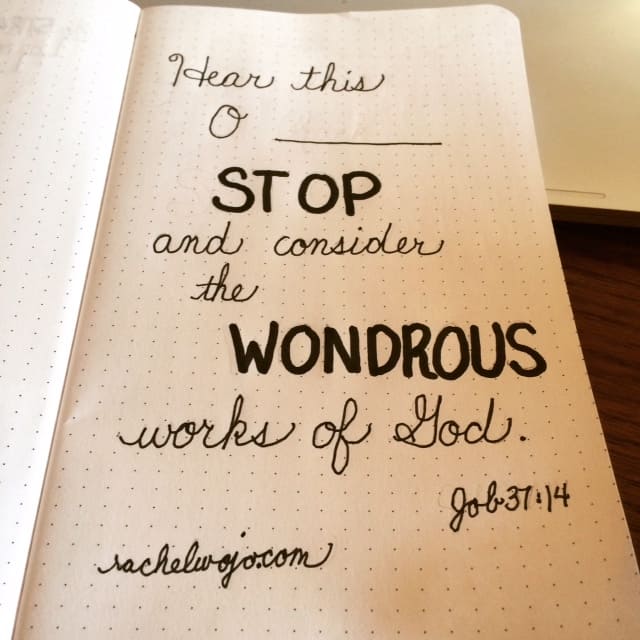 Hear this
O ________
STOP
and consider
the
WONDROUS
works of God.
Job 37:14
rachelwojo.com